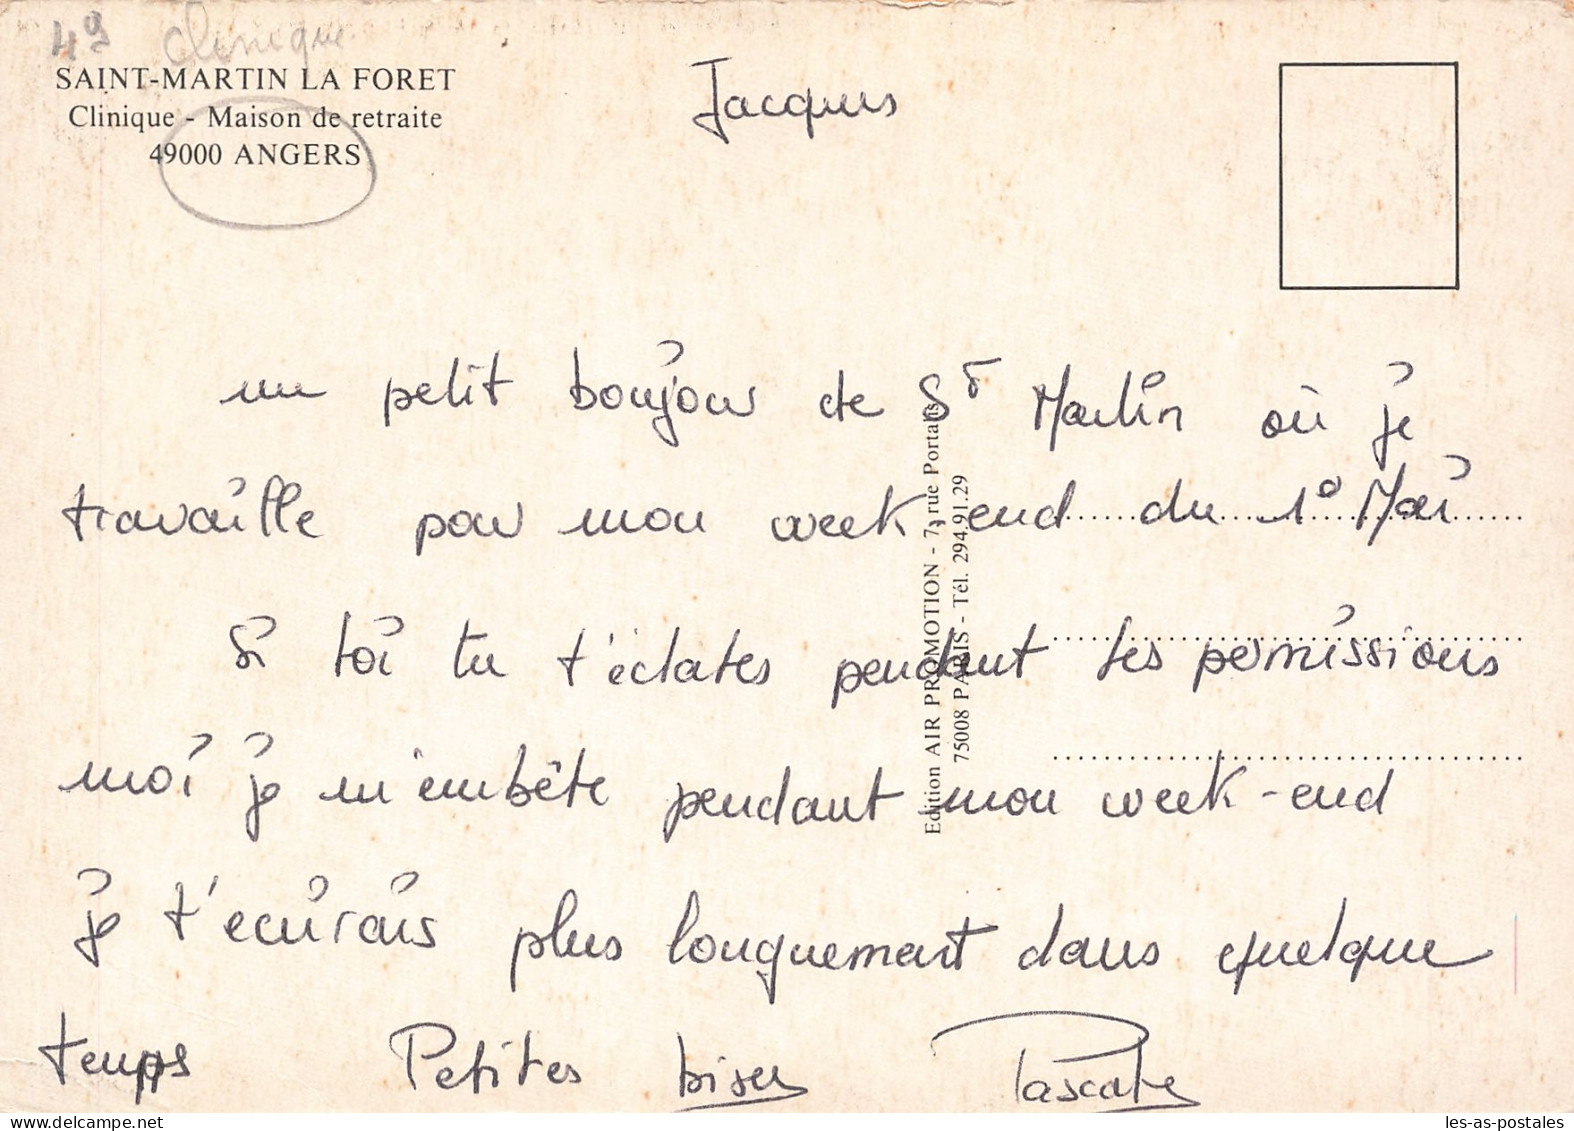 49 Clinique
SAINT-MARTIN LA FORET
Clinique - Maison de retraite
49000 ANGERS
Jacques
un petit boujour de St Martin où je
travaille pour mon week end du 1° Mai
Si toi tu t'éclates pendant tes permissions
moi je m'embête pendant mon week-end
je t'ecrirais plus longuement dans quelque
temps Petites bises Pascale
Edition AIR PROMOTION - 7, rue Portalis
75008 PARIS - Tél. 294.91.29
les-as-postales